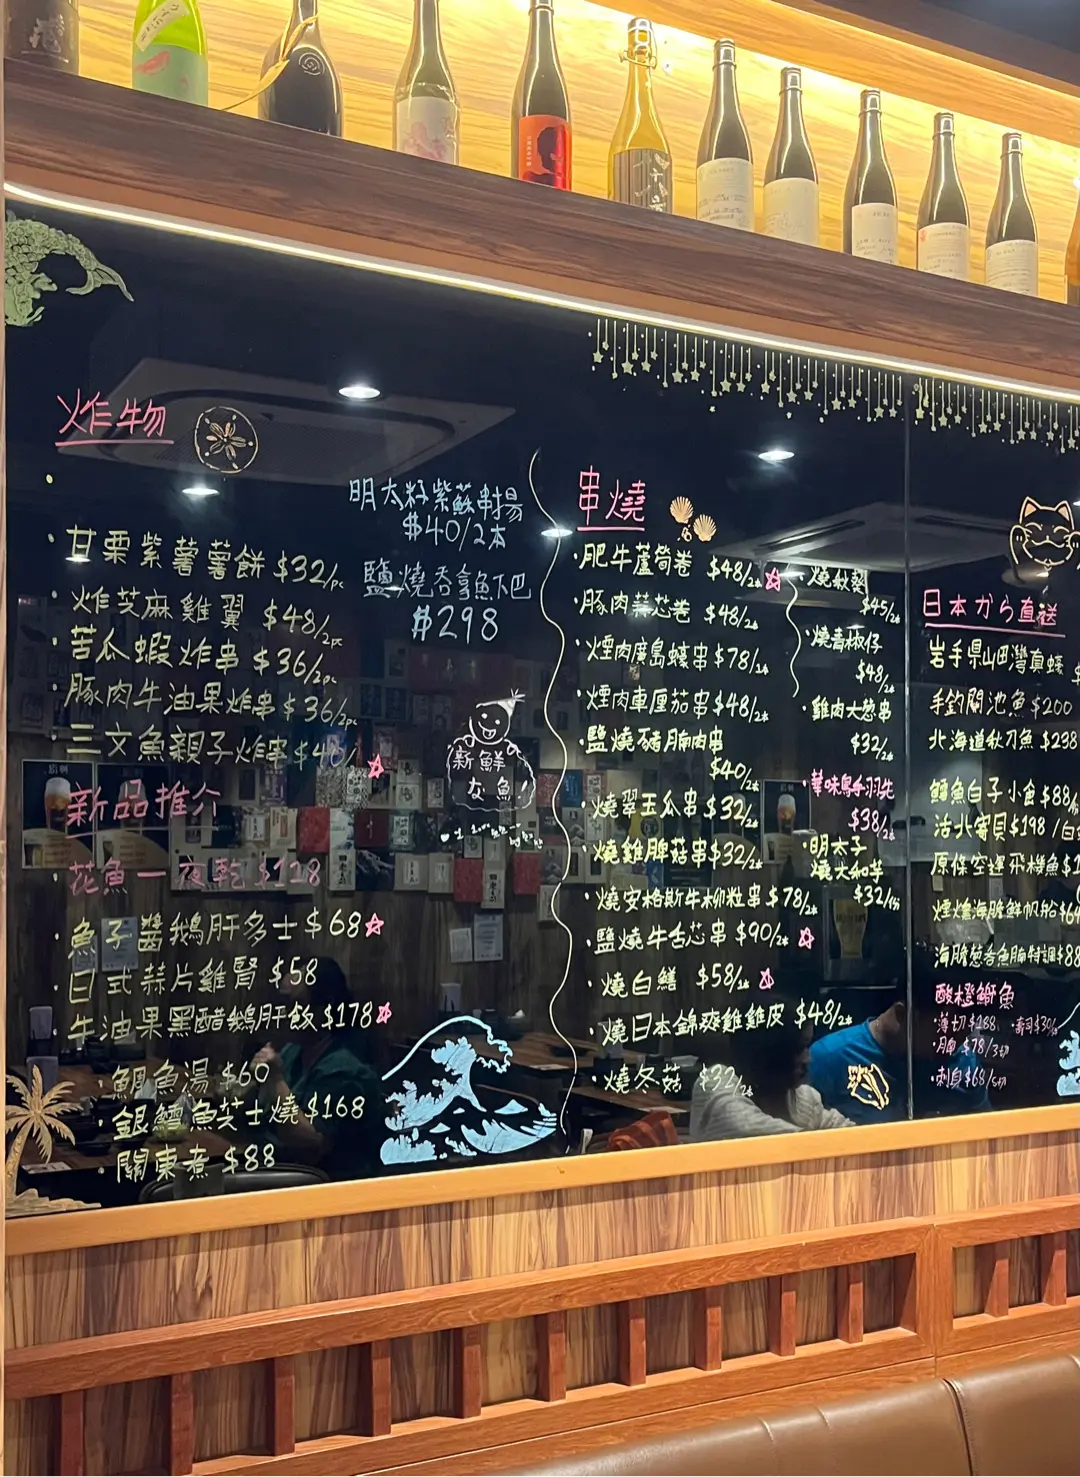 炸物
甘栗紫薯薯餅 $32/pc
炸芝麻雞翼 $48/2pc
苦瓜蝦炸串 $36/2pc
豚肉牛油果炸串 $36/2pc
三文魚親子炸串 $40/
新品推介
花魚一夜乾 $128
魚子醬鵝肝多士 $68
日式蒜片雞腎 $58
牛油果黑醋鵝肝飯 $178
鯛魚湯 $60
銀鱈魚芝士燒 $168
關東煮 $88
明太籽紫蘇串揚
$40/2本
鹽燒吞拿魚下巴
$298
新鮮
友魚!
串燒
肥牛蘆筍卷 $48/2本
豚肉蒜芯卷 $48/2本
煙肉廣島蠔串 $78/2本
煙肉車厘茄串 $48/2本
鹽燒豬腩肉串
$40/2本
燒翠玉瓜串 $32/2本
燒雞脾菇串 $32/2本
燒安格斯牛柳粒串 $78/2本
鹽燒牛舌芯串 $90/2本
燒白鱔 $58/2本
燒日本錦爽雞雞皮 $48/2本
燒冬菇 $32/2本
燒秋葵
$45/2本
燒青椒仔
$48/2本
雞肉大葱串
$32/2本
華味鳥手羽先
$38/2本
明太子
燒大和芋
$32/
日本から直送
岩手県山田灣真蠔
手釣間池魚 $200
北海道秋刀魚 $238
鱈魚白子小食 $88/
活北寄貝 $198 /
原條空運飛機魚 $1
煙燻海膽鮮帆船 $64
海膽葱吞魚腩特調 $88
酸橙鰤魚
薄切 $188 壽司 $30/
腩 $78/3切
刺身 $68/5切